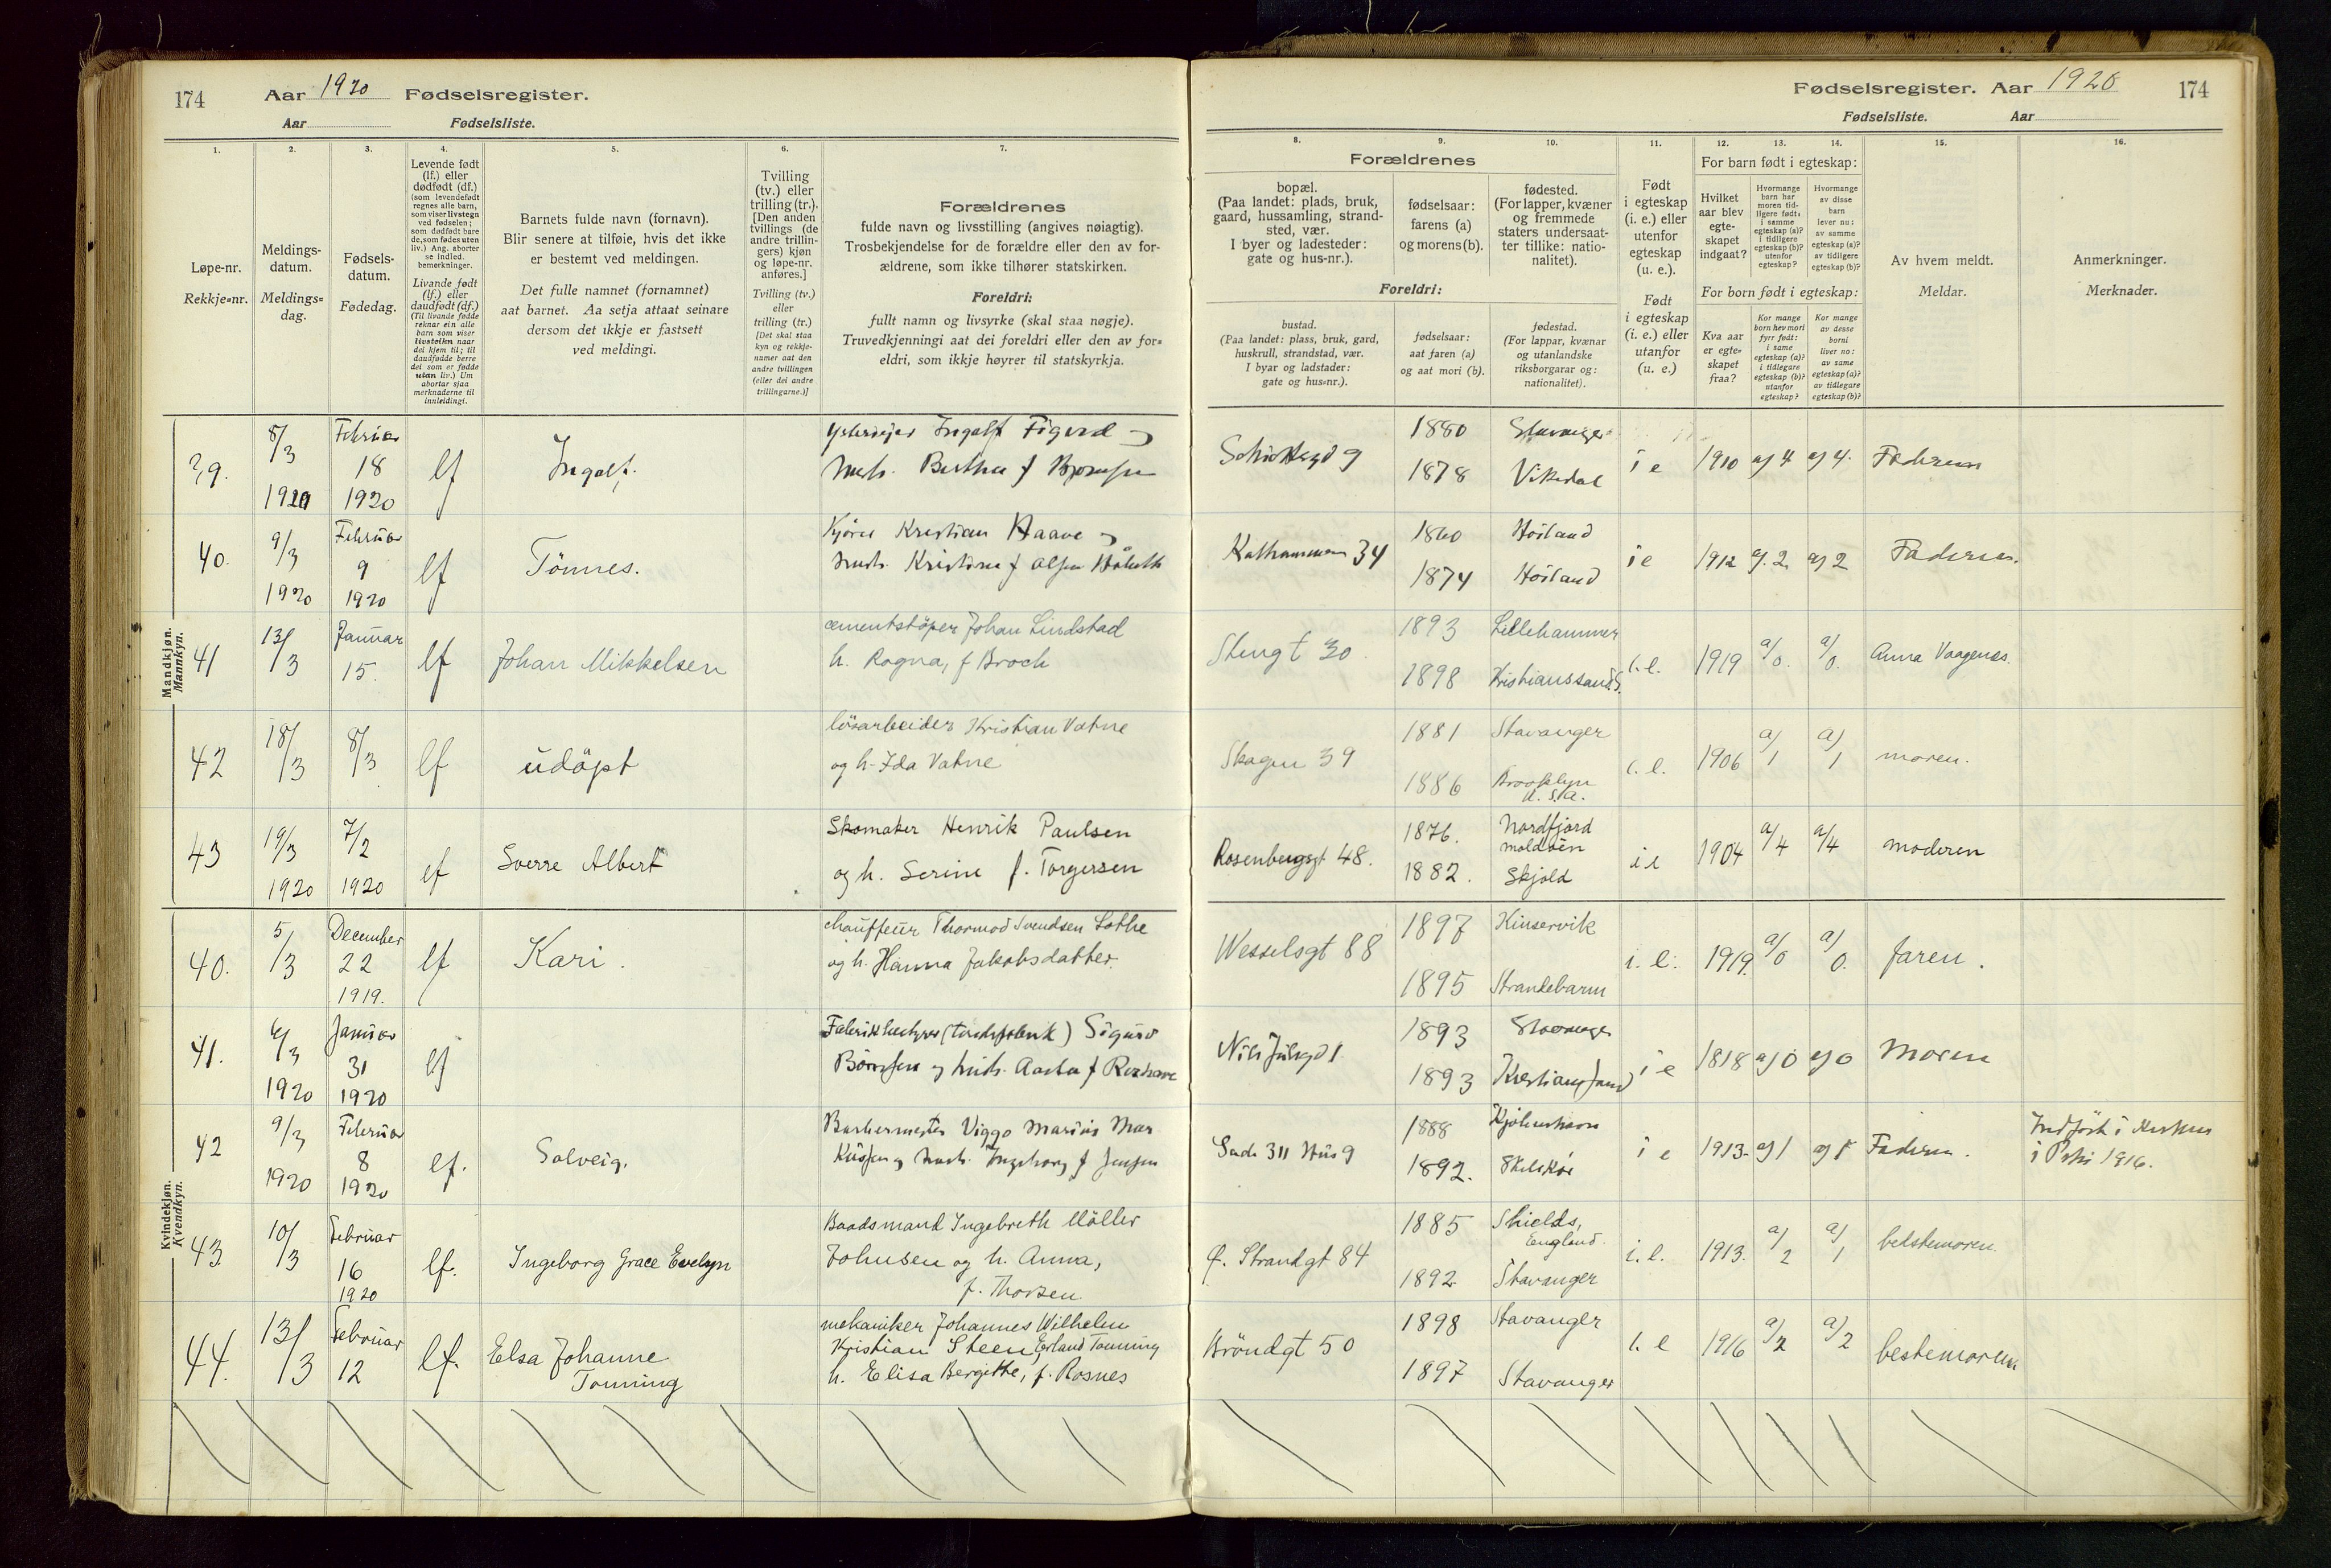 174 Aar 1920 Fødselsregister.
Aar Fødselsliste.
1. 2. 3. 4. 5. 6. 7.
Løpe-nr.
Rekkje=nr.
Meldings-
datum.
Meldings=
dag.
Fødsels-
datum.
Fødedag.
Levende født
(lf.) eller
dødfødt (df.)
(som levendefødt
regnes alle barn,
som viser livstegn
ved fødselen;
som dødfødt bare
de, som fødes uten
liv.) Ang. aborter
se indled.
bemerkninger.
Livande født
(lf.) eller
daudfødt (df.)
(Til livande fødde
reknar ein alle
born som viser
livsteikn naar
dei kjem til; til
daudfødde berre
dei som er fødde
utan liv.) Um
abortar sjaa
merknaderne til
innleidingi.
Barnets fulde navn (fornavn).
Blir senere at tilføie, hvis det ikke
er bestemt ved meldingen.
Det fulle namnet (fornamnet)
aat barnet. Aa setja attaat seinare
dersom det ikkje er fastsett
ved meldingi.
Tvilling
(tv.) eller
trilling (tr.).
[Den anden
tvillings (de
andre trillin-
gers) kjøn
og løpe-nr.
anføres.]
Tvilling (tv.)
eller
trilling (tr.)
[Det skal staa
kyn og rekkje-
numer aat den
andre tvillingen
(eller dei andre
trillingarne.)]
Forældrenes
fulde navn og livsstilling (angives nøiagtig).
Trosbekjendelse for de forældre eller den av for-
ældrene, som ikke tilhører statskirken.
Foreldri:
fullt namn og livsyrke (skal staa nøgje).
Truvedkjenningi aat dei foreldri eller den av for=
eldri, som ikkje høyrer til statskyrkja.
Mandkjøn.
Mannkyn.
39. 8/3 1920 Februar 18 1920 lf Ingolf. Ingolf Figved
Berthe f
40. 9/3 1920 Februar 9 1920 lf Tönnes. Kristian Haave
Kristine f Olsen
41 13/3 Januar 15. lf Johan Mikkelsen cementstöper Johan Lindstad
h. Ragna, f Broch
42 18/3 8/3 lf udöpt lösarbeider Kristian Vatne
og h. Ida Vatne
43 19/3 1920 7/2 1920 lf Sverre Albert Skomaker Henrik Paulsen
og h. Serine f. Torgersen
Kvindekjøn.
Kvendkyn.
40. 5/3 December 22 1919. lf Kari. chauffeur Thormod Svendsen Lothe
og h. Hanna Jakobsdatter.
41. 6/3 1920 Januar 31 1920 lf Sigurd
og hust. Aasta f
42 9/3 1920 Februar 8 1920 lf. Solveig. Barbermester Viggo Marius Mar
kussen og hust. Ingeborg f Jensen
43. 10/3 Februar 16 1920 lf. Ingeborg Grace Evelyn Baadsmand Ingebreth Möller
Johnsen og h. Anna,
f. Thorsen.
44. 13/3 Februar 12 lf. Elsa Johanne
Tonning mekaniker Johannes Wilhelm
Kristian Steen Erland Tonning
h. Elisa Bergitte, f. Rosnes
Fødselsregister. Aar 1920 174
Fødselsliste. Aar
8. 9. 10. 11. 12. 13. 14. 15. 16.
Forældrenes
bopæl.
(Paa landet: plads, bruk,
gaard, hussamling, strand-
sted, vær.
I byer og ladesteder:
gate og hus-nr.).
fødselsaar:
farens (a)
og morens (b).
fødested.
(For lapper, kvæner
og fremmede
staters undersaat-
ter tillike: natio-
nalitet).
Foreldri:
bustad.
(Paa landet: plass, bruk, gard,
huskrull, strandstad, vær.
I byar og ladstader:
gate og hus=nr.).
fødselsaar:
aat faren (a)
og aat mori (b).
fødestad.
(For lappar, kvænar
og utanlandske
riksborgarar og:
nationalitet).
Født
i egteskap
(i. e.) eller
utenfor
egteskap
(u. e.).
Født
i egteskap
(i. e.) eller
utanfor
egteskap
(u. e.)
For barn født i egteskap:
Hvilket
aar blev
egte-
skapet
indgaat?
Hvormange
barn har
moren tid-
ligere født:
i samme
egteskap (a)?
i tidligere
egteskap (b)?
utenfor
egteskap?
Hvormange
av disse
barn
lever nu:
av samme
egteskap (a)?
av tidligere
egteskap (b)?
For born født i egteskap:
Kva aar
er egte=
skapet
fraa?
Kor mange
born hev mori
fyrr født:
i same
egteskap (a)?
i tidlegare
egteskap (b)?
utanfor
egteskap?
Kor mange
av desse
borni
liver no:
av same
egteskap (a)?
av tidlegare
egteskap (b)?
Av hvem meldt.
Meldar.
Anmerkninger.
Merknader.
9 1880 Stavanger
1878 Vikedal i e 1910 a) 4 a) 4. Faderen
34 1860 Höiland
1874 Höiland i e 1912 a) 2. a) 2 Faderen.
Stengt 30 1893 Lillehammer
1898 Kristianssand S. i. e. 1919 a/0. a/0. Anna Vaagenes.
Skagen 39 1881 Stavanger
1886 Brooklyn
U. S. A. i. e. 1906 a/1 a/1 moren.
Rosenbergsgt 48. 1876. Nordfjord
moldöen
1882. Skjold i e 1904 a/4 a/4 moderen
Wesselsgt 88 1897 Kinservik
1895 Strandebarm i. e. 1919. a/0 a/0. faren.
Nils Julsgd 1 1893 Stavanger
1893 Kristianssand i e 1818 a) 0 a) 0 Moren
311 Hus 9 1888
1892. Skelskör i e 1913. a) 1 a) 1 Faderen. Indfört i
i 1916.
Ø. Strandgt 84 1885 Shields,
England.
1892 Stavanger i. e. 1913. a/2 a/1 bedstemoren.
Bröndgt 50 1898 Stavanger
1897 Stavanger i. e 1916 a/2 a/2 bestemoren